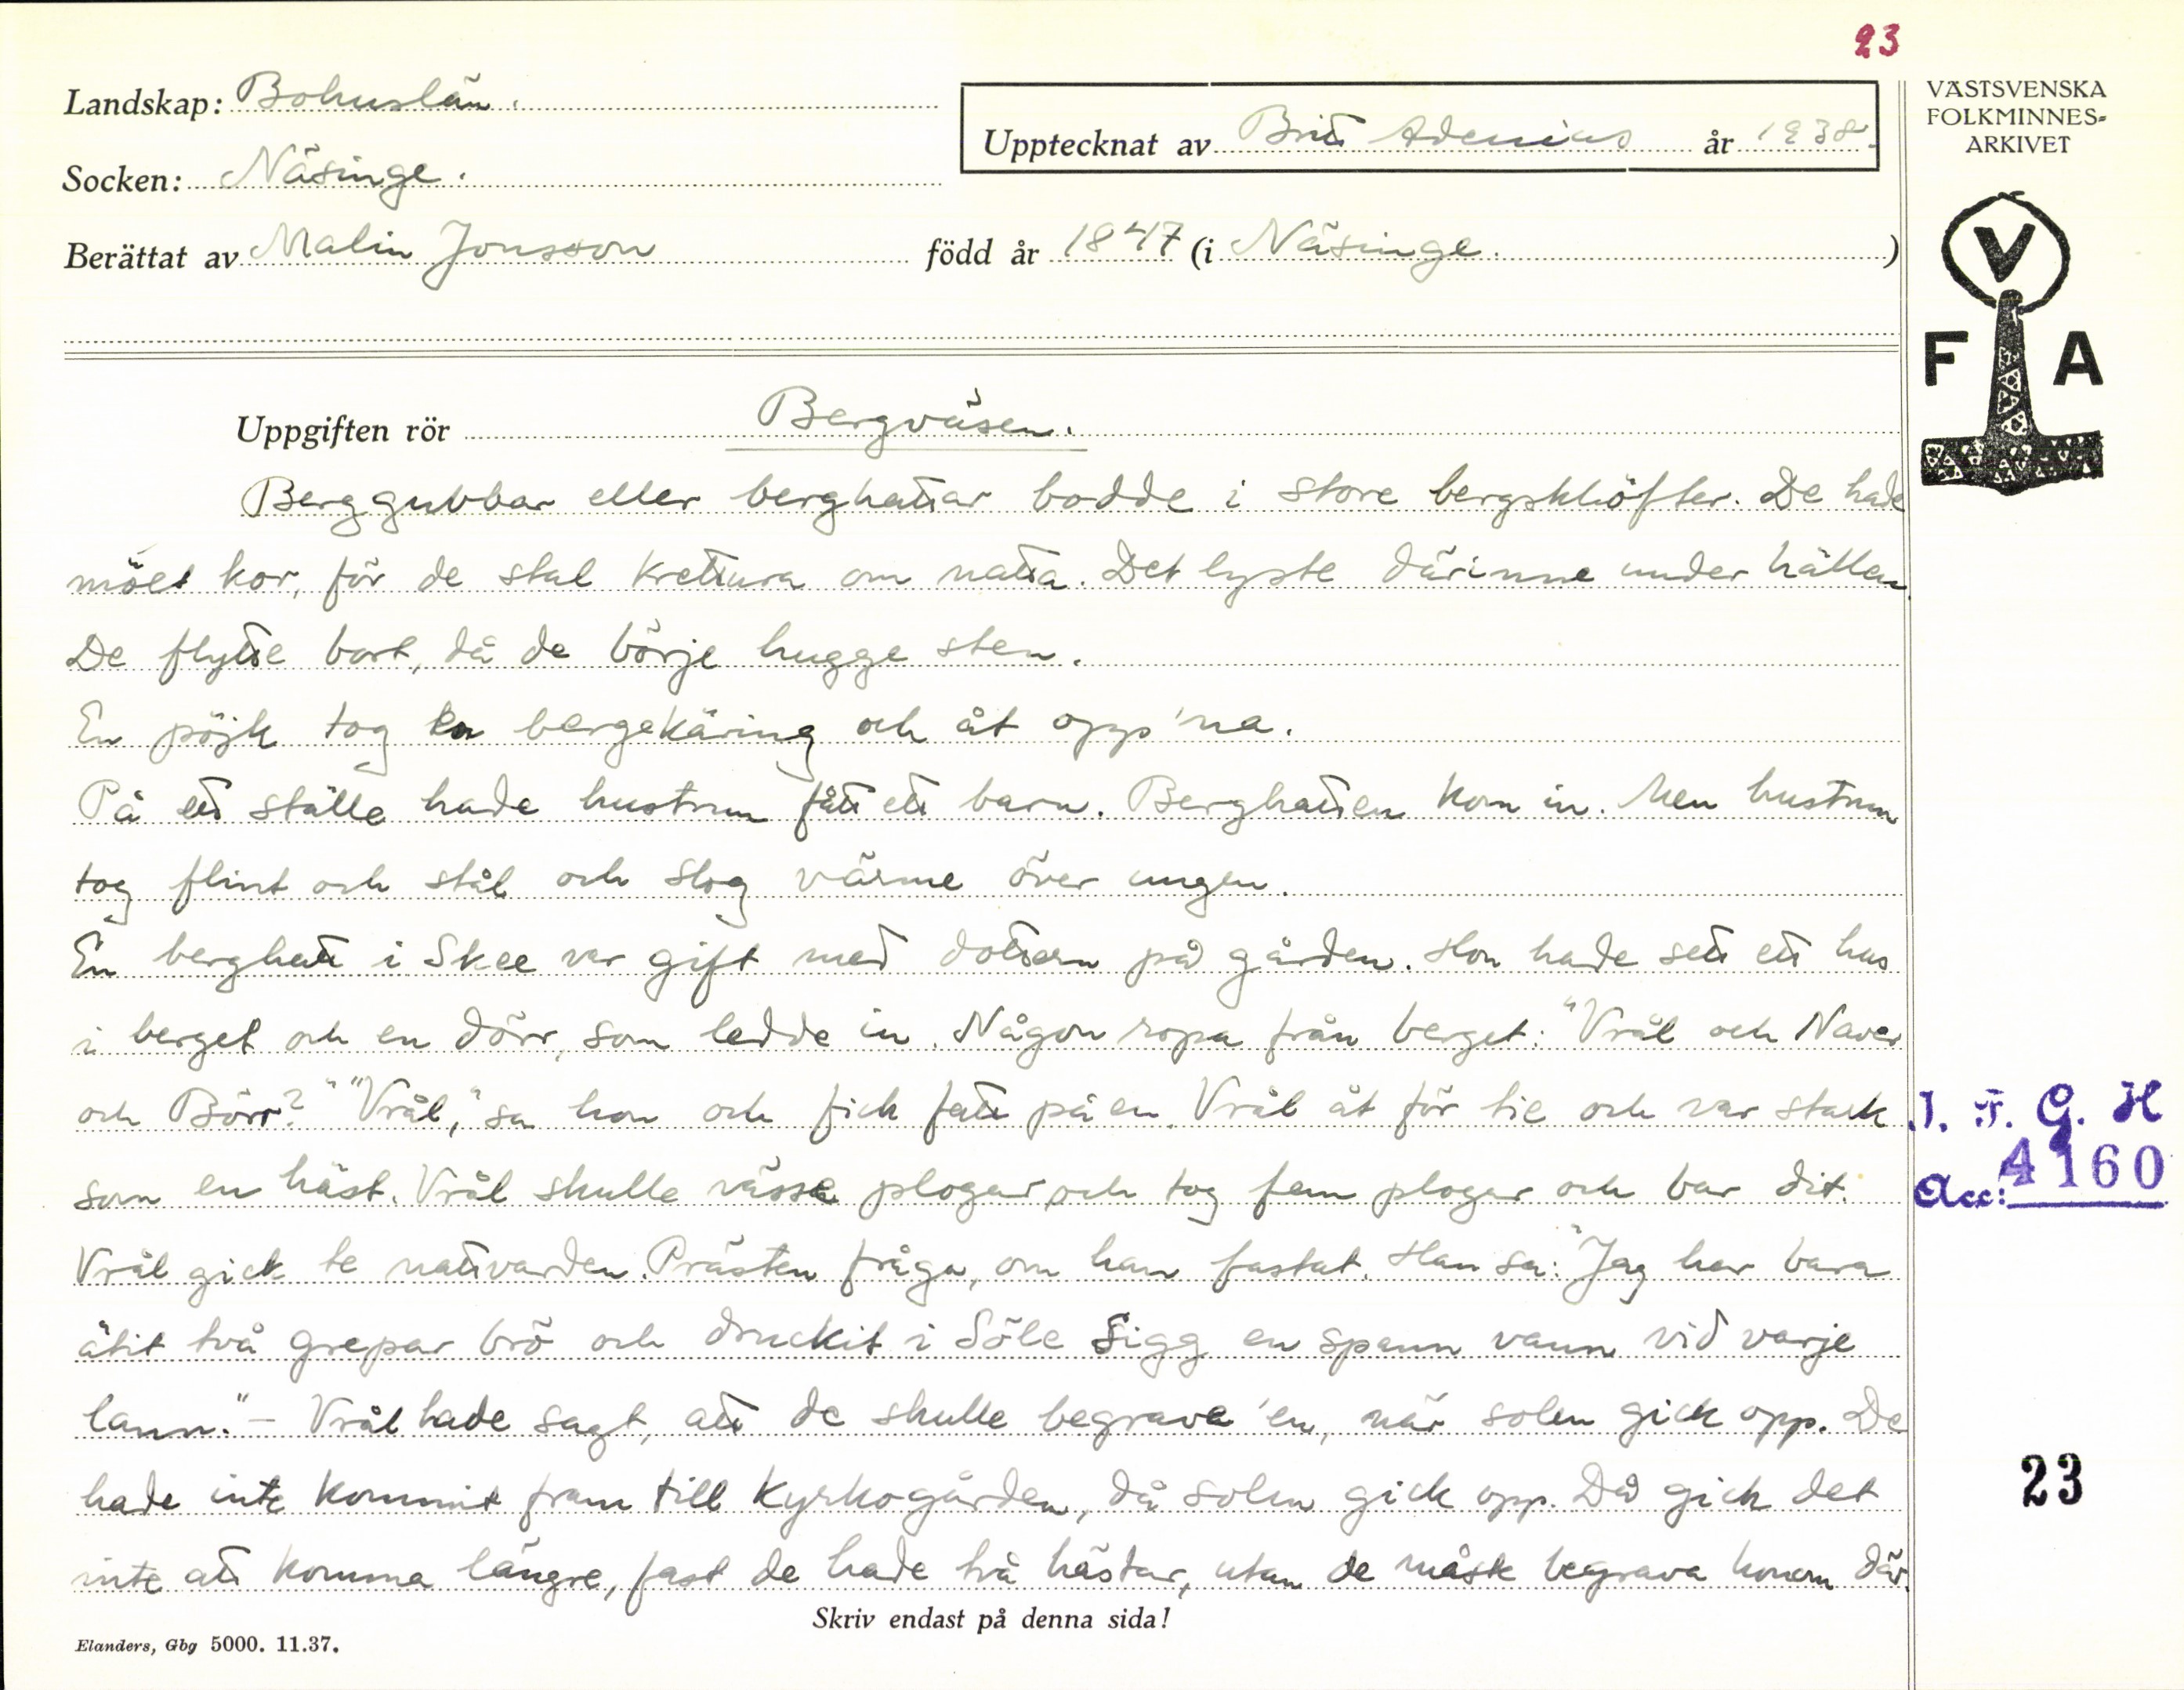 23
Landskap: Bohuslän.
Upptecknat av Brita Adenius år 1938.
VÄSTSVENSKA
FOLKMINNES-
ARKIVET
Socken: Näsinge.
Berättat av Malin Jonsson född år 1847 (i Näsinge.)
V
F A
Uppgiften rör Bergväsen.
Berggubbar eller berghattar bodde i store bergsklöfter. De hade
möet kor, för de stal krettura om natta. Det lyste därinne under hällen
De flytte bort, då de börje hugge sten.
En pöjk tog en bergekäring och åt opp'na.
På ett ställe hade hustrun fått ett barn. Berghatten kom in. Men hustrun
tog flint och stål och slog värme över ungen.
En berghatt i Skee var gift med dottern på gården. Hon hade sett ett hus
i berget och en dörr, som ledde in. Någon ropa från berget: "Vrål och Naver
och Börr?" "Vrål," sa hon och fick fatt på en. Vrål åt för tie och var stark
som en häst. Vrål skulle vässa plogar och tog fem plogar och bar dit.
Vrål gick te nattvarden. Prästen fråga, om han fastat. Han sa: "Jag har bara
ätit två grepar brö och druckit i Söle Sigg en spann vann vid varje
lann." – Vrål hade sagt, att de skulle begrava 'en, när solen gick opp. De
hade inte kommit fram till kyrkogården, då solen gick opp. Då gick det
inte att komma längre, fast de hade två hästar, utan de måste begrava honom där.
I. F. G. H
Acc: 4160
23
Skriv endast på denna sida!
Elanders, Gbg 5000. 11.37.